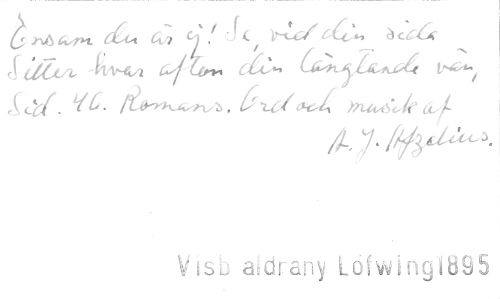 Ensam du är ej! Se, vid din sida
Sitter hvar afton din längtande vän,
Sid. 46. Romans. Ord och musik af
A. J. Afzelius.
Visb aldrany Löfwing1895